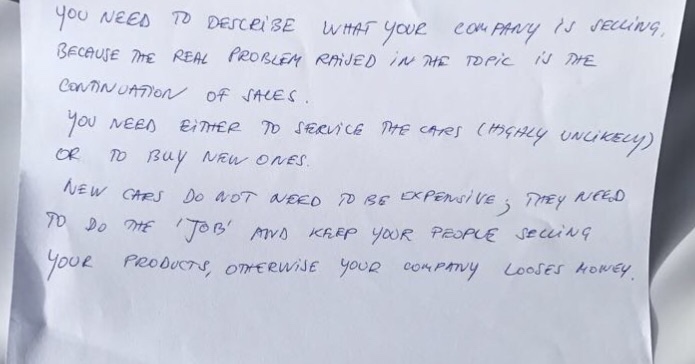 YOU NEED TO DESCRIBE WHAT YOUR COMPANY IS SELLING,
BECAUSE THE REAL PROBLEM RAISED IN THE TOPIC IS THE
CONTINUATION OF SALES.
YOU NEED EITHER TO SERVICE THE CARS (HIGHLY UNLIKELY)
OR TO BUY NEW ONES.
NEW CARS DO NOT NEED TO BE EXPENSIVE; THEY NEED
TO DO THE 'JOB' AND KEEP YOUR PEOPLE SELLING
YOUR PRODUCTS, OTHERWISE YOUR COMPANY LOOSES MONEY.